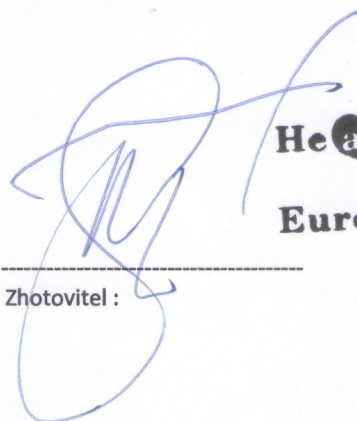 He a
Euro
Zhotovitel :